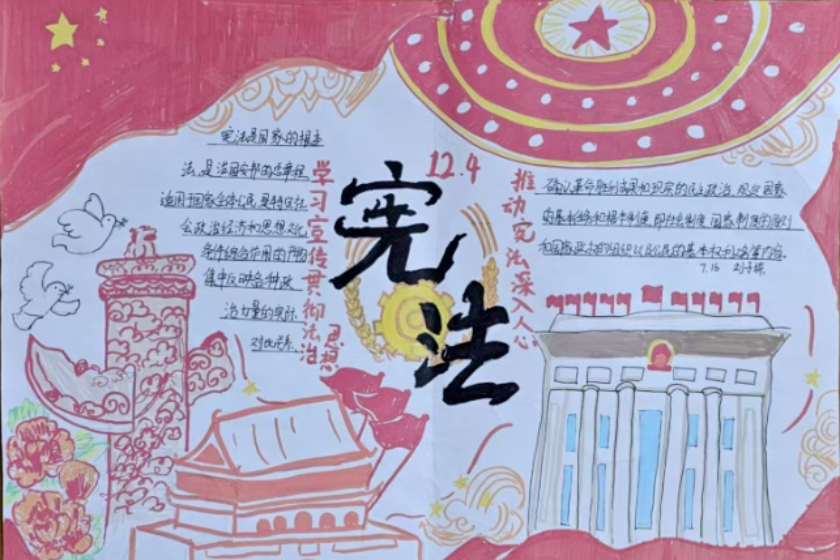 宪法是国家的根本
法,是治国安邦的总章程
适用于国家全体公民,是特定社
会政治经济和思想文化
条件综合作用的产物
集中反映各种政
治力量的实际
对比关系.
学习宣传贯彻法治思想
12.4
宪法
推动宪法深入人心
确认革命胜利成果和现实的民主政治,规定国家
的基本任务和根本制度,即社会制度、国家制度的原则
和国家政权的组织以及公民的基本权利义务等内容.
7.16